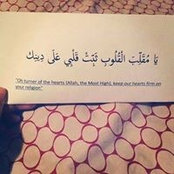 يَا مُقَلِّبَ الْقُلُوبِ ثَبِّتْ قَلْبِي عَلَى دِينِكَ
"Oh turner of the hearts (Allah, the Most High), keep our hearts firm on
your religion"